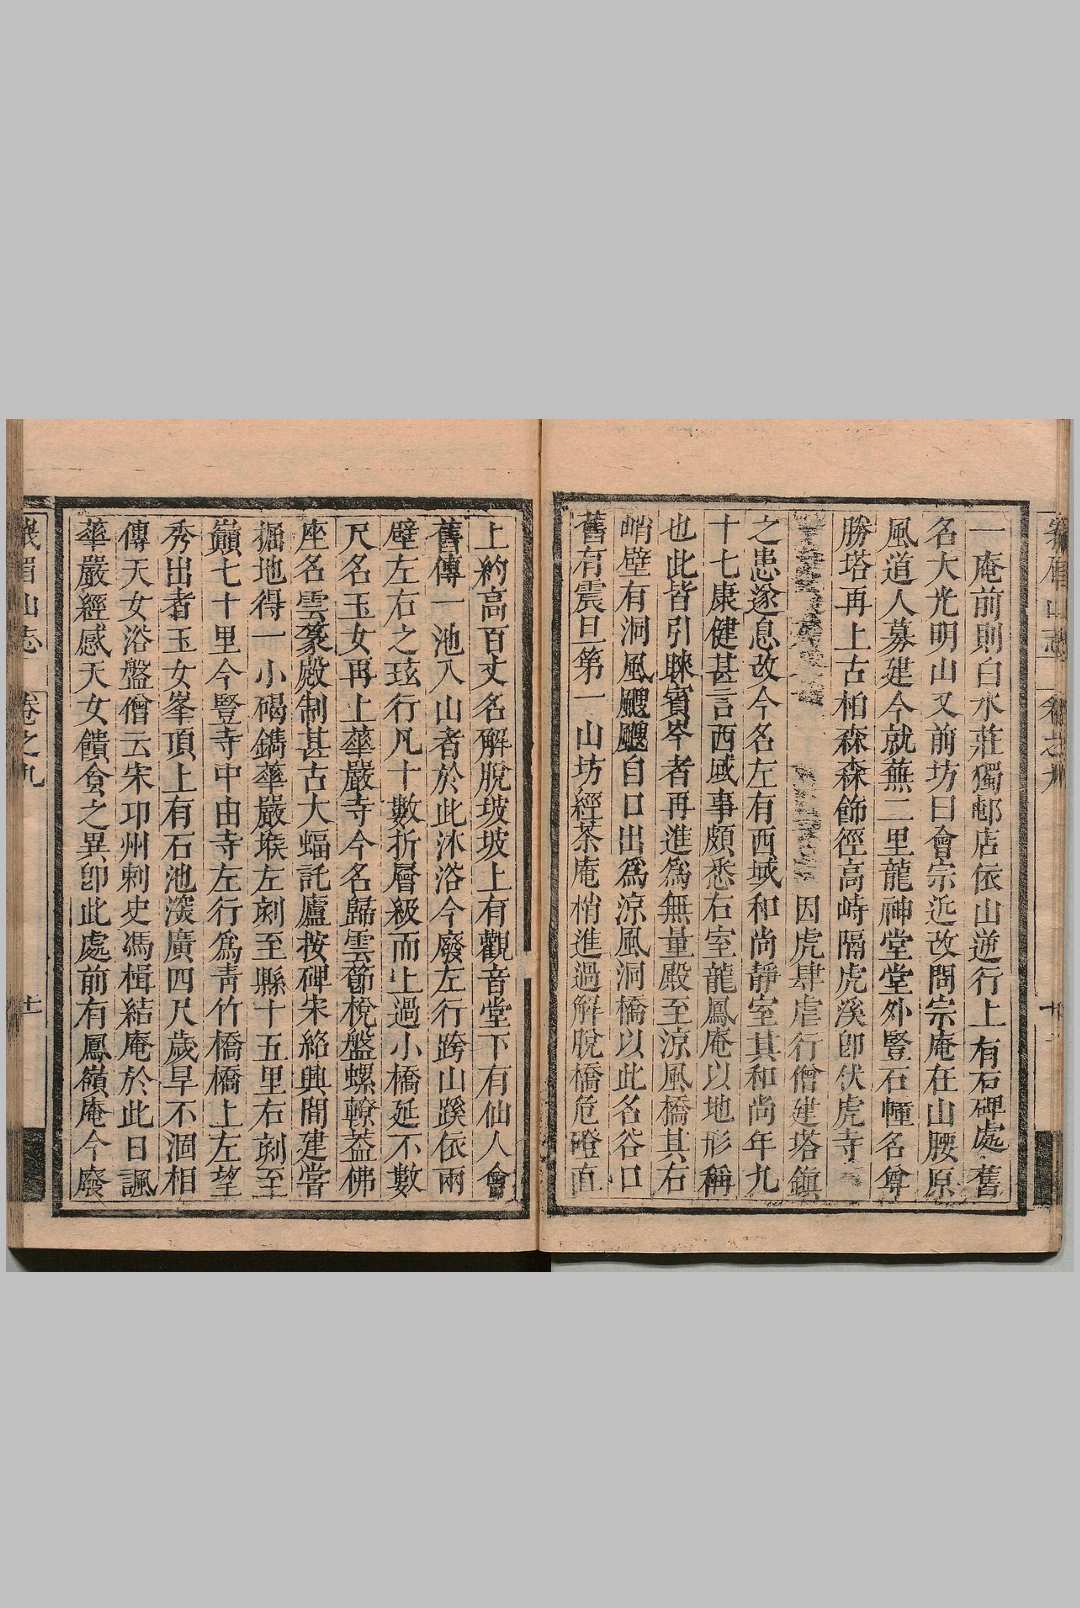 一庵前則白水莊獨邨店依山逆行上有石碑處舊
名大光明山又前坊曰會宗近改問宗庵在山腰原
風道人募建今就蕪二里龍神堂堂外豎石幢名尊
勝塔再上古柏森森飾徑高峙隔虎溪卽伏虎寺
因虎肆虐行僧建塔鎮
之患遂息改今名左有西域和尚靜室其和尚年九
十七康健甚言西域事頗悉右室龍鳳庵以地形稱
也此皆引睞賓岑者再進爲無量殿至涼風橋其右
峭壁有洞風颼颼自口出爲涼風洞橋以此名谷口
舊有震旦第一山坊經茶庵梢進過解脫橋危磴直
上約高百丈名解脫坡坡上有觀音堂下有仙人會
舊傳一池入山者於此沐浴今廢左行跨山蹊依兩
壁左右之玹行凡十數折層級而上過小橋延不數
尺名玉女再上華嚴寺今名歸雲節梲盤螺轑蓋佛
座名雲篆殿制甚古大蝠託廬按碑宋紹興間建嘗
掘地得一小碣鐫華嚴堠左刻至縣十五里右刻至
巔七十里今豎寺中由寺左行爲靑竹橋橋上左望
秀出者玉女峯頂上有石池深廣四尺歲旱不涸相
傳天女浴盤僧云宋卭州刺史馮楫結庵於此日諷
華嚴經感天女饋食之異卽此處前有鳳嶺庵今廢
峩眉山志 卷之九 十一